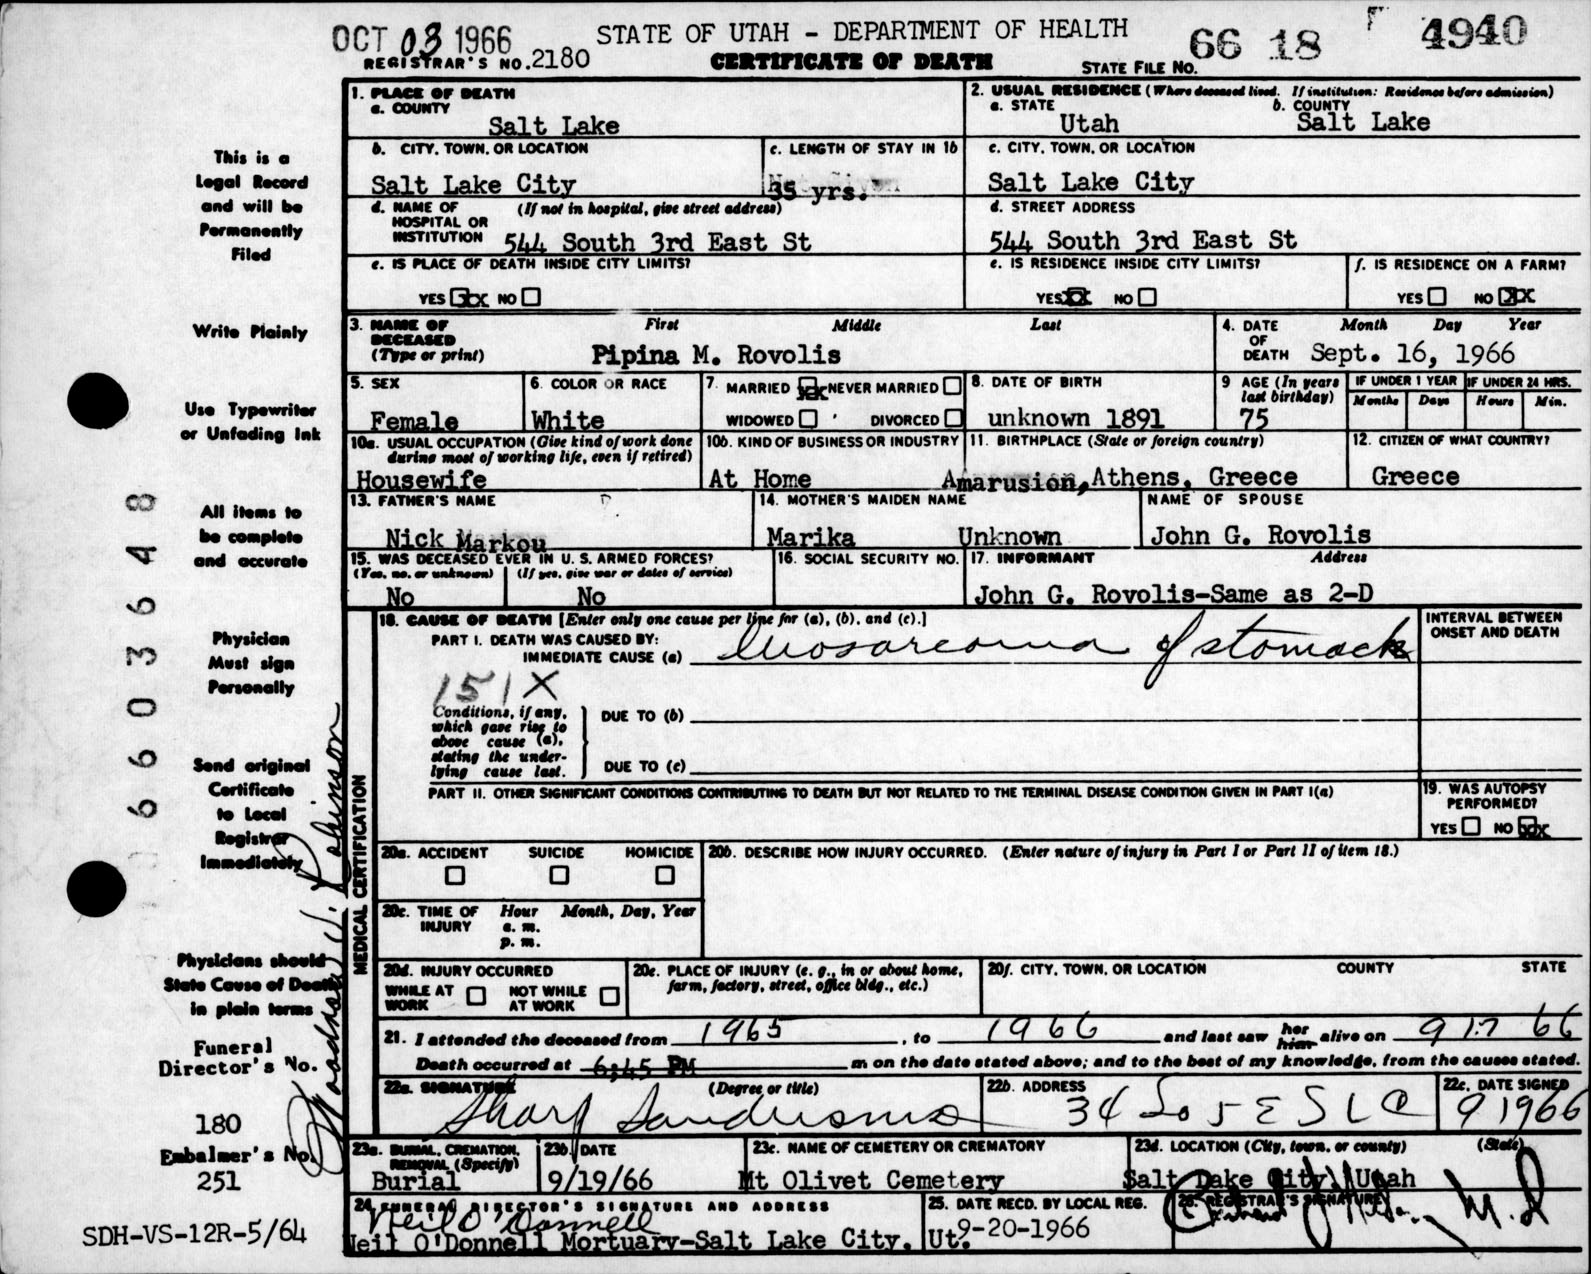 OCT 03 1966 STATE OF UTAH - DEPARTMENT OF HEALTH 66 18 4940
REGISTRAR'S NO. 2180 CERTIFICATE OF DEATH STATE FILE NO.
This is a
Legal Record
and will be
Permanently
Filed
Write Plainly
Use Typewriter
or Unfading Ink
All items to
be complete
and accurate
Physician
Must sign
Personally
Send original
Certificate
to Local
Registrar
Immediately
Physicians should
State Cause of Death
in plain terms
Funeral
Director's No.
180
Embalmer's No.
251
SDH-VS-12R-5/64
6603648
1. PLACE OF DEATH
a. COUNTY
Salt Lake
2. USUAL RESIDENCE (Where deceased lived. If institution: Residence before admission)
a. STATE b. COUNTY
Utah Salt Lake
b. CITY, TOWN, OR LOCATION
Salt Lake City
c. LENGTH OF STAY IN 1b
35 yrs.
c. CITY, TOWN, OR LOCATION
Salt Lake City
d. NAME OF (If not in hospital, give street address)
HOSPITAL OR
INSTITUTION 544 South 3rd East St
d. STREET ADDRESS
544 South 3rd East St
e. IS PLACE OF DEATH INSIDE CITY LIMITS?
YES XX NO
e. IS RESIDENCE INSIDE CITY LIMITS?
YES XX NO
f. IS RESIDENCE ON A FARM?
YES NO XX
3. NAME OF First Middle Last
DECEASED
(Type or print) Pipina M. Rovolis
4. DATE Month Day Year
OF
DEATH Sept. 16, 1966
5. SEX
Female
6. COLOR OR RACE
White
7. MARRIED XX NEVER MARRIED
WIDOWED DIVORCED
8. DATE OF BIRTH
unknown 1891
9 AGE (In years
last birthday)
75
IF UNDER 1 YEAR IF UNDER 24 HRS.
Months Days Hours Min.
10a. USUAL OCCUPATION (Give kind of work done
during most of working life, even if retired)
Housewife
10b. KIND OF BUSINESS OR INDUSTRY
At Home
11. BIRTHPLACE (State or foreign country)
Amarusion, Athens, Greece
12. CITIZEN OF WHAT COUNTRY?
Greece
13. FATHER'S NAME
Nick Markou
14. MOTHER'S MAIDEN NAME
Marika Unknown
NAME OF SPOUSE
John G. Rovolis
15. WAS DECEASED EVER IN U. S. ARMED FORCES?
(Yes, no, or unknown) (If yes, give war or dates of service)
No No
16. SOCIAL SECURITY NO.
17. INFORMANT Address
John G. Rovolis-Same as 2-D
MEDICAL CERTIFICATION
18. CAUSE OF DEATH [Enter only one cause per line for (a), (b), and (c).]
INTERVAL BETWEEN
ONSET AND DEATH
PART I. DEATH WAS CAUSED BY:
IMMEDIATE CAUSE (a) of stomach
151 X
Conditions, if any,
which gave rise to
above cause (a),
stating the under-
lying cause last.
DUE TO (b)
DUE TO (c)
PART II. OTHER SIGNIFICANT CONDITIONS CONTRIBUTING TO DEATH BUT NOT RELATED TO THE TERMINAL DISEASE CONDITION GIVEN IN PART I(a)
19. WAS AUTOPSY
PERFORMED?
YES NO XX
20a. ACCIDENT SUICIDE HOMICIDE
20b. DESCRIBE HOW INJURY OCCURRED. (Enter nature of injury in Part I or Part II of item 18.)
20c. TIME OF Hour Month, Day, Year
INJURY a. m.
p. m.
20d. INJURY OCCURRED
WHILE AT NOT WHILE
WORK AT WORK
20e. PLACE OF INJURY (e. g., in or about home,
farm, factory, street, office bldg., etc.)
20f. CITY, TOWN, OR LOCATION COUNTY STATE
21. I attended the deceased from 1965, to 1966 and last saw her him alive on 9 17 66
Death occurred at 6;45 PM m on the date stated above; and to the best of my knowledge, from the causes stated.
22a. SIGNATURE (Degree or title)
22b. ADDRESS
34 So 5 E S L C
22c. DATE SIGNED
9 19 66
23a. BURIAL, CREMATION,
REMOVAL (Specify)
Burial
23b. DATE
9/19/66
23c. NAME OF CEMETERY OR CREMATORY
Mt Olivet Cemetery
23d. LOCATION (City, town, or county) (State)
Salt Lake City, Utah
24. FUNERAL DIRECTOR'S SIGNATURE AND ADDRESS
Neil O'Donnell
Neil O'Donnell Mortuary-Salt Lake City, Ut.
25. DATE RECD. BY LOCAL REG.
9-20-1966
26. REGISTRAR'S SIGNATURE
M.D